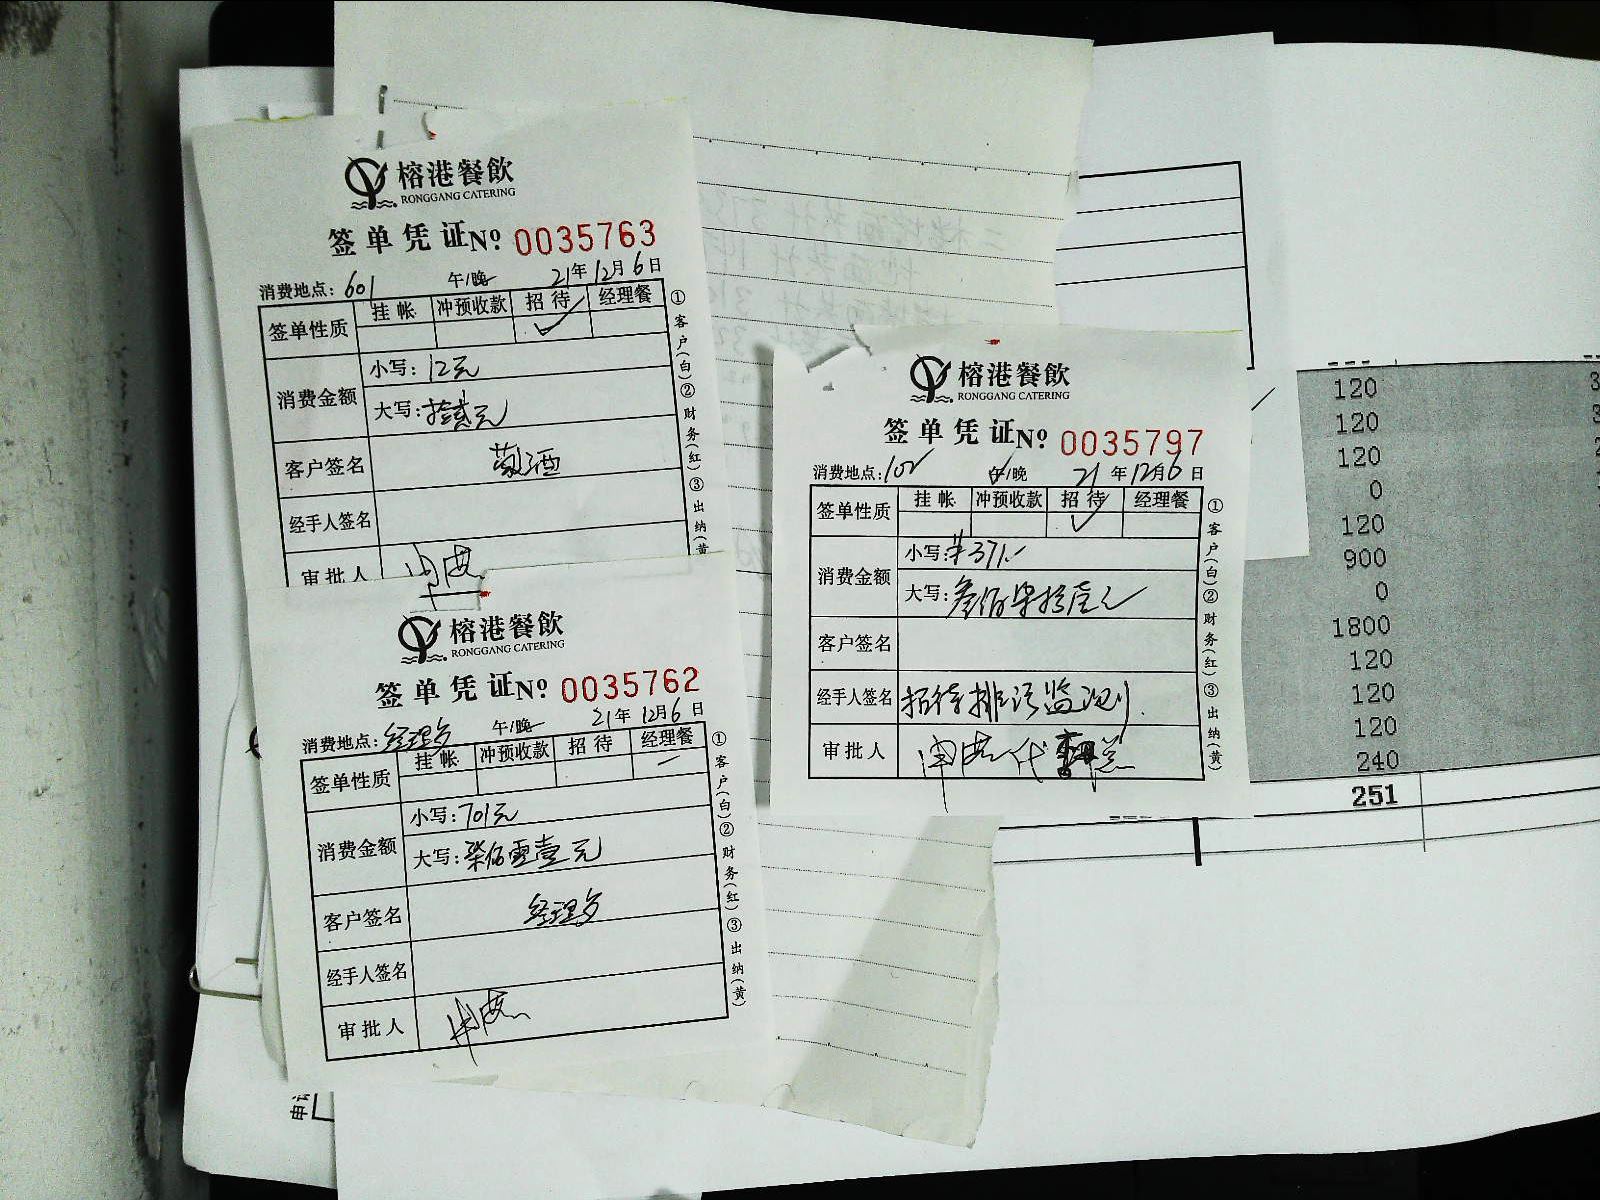 榕港餐飲
RONGGANG CATERING
签单凭证No 0035763
消费地点: 601 午/晚 21年12月6日
签单性质 挂帐 冲预收款 招待 经理餐
消费金额 小写: 12元
大写: 拾贰元
客户签名
经手人签名
审批人
①客户(白)②财务(红)③出纳(黄
榕港餐飲
RONGGANG CATERING
签单凭证No 0035762
消费地点: 经理 午/晚 21年12月6日
签单性质 挂帐 冲预收款 招待 经理餐
消费金额 小写: 701元
大写: 柒佰零壹元
客户签名 经理
经手人签名
审批人
①客户(白)②财务(红)③出纳(黄)
榕港餐飲
RONGGANG CATERING
签单凭证No 0035797
消费地点: 102 午/晚 21年12月6日
签单性质 挂帐 冲预收款 招待 经理餐
消费金额 小写: ¥371.
大写: 叁佰柒拾壹元
客户签名
经手人签名 招待排污监测
审批人
①客户(白)②财务(红)③出纳(黄)
120
120
120
0
120
900
0
1800
120
120
120
240
251